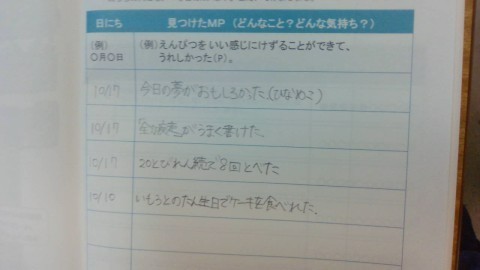 日にち 見つけたMP（どんなこと？どんな気持ち？）
(例)
〇月〇日
(例)えんぴつをいい感じにけずることができて、
うれしかった(P)。
10/17 今日の夢がおもしろかた。(ひなめこ)
10/17 がうまく書けた。
10/17 20とびれん続で8回とべた
10/10 いもうとのたん生日でケーキを食べれた。